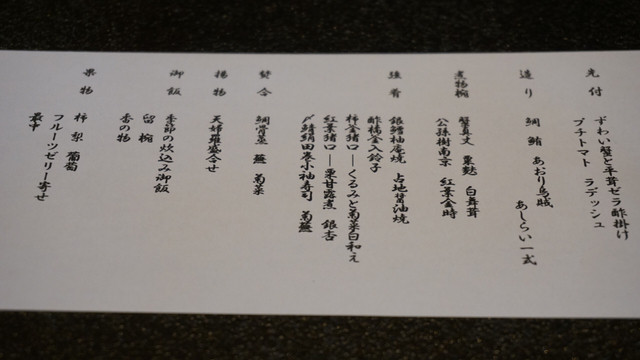 先付
ずわい蟹と平茸ゼラ酢掛け
プチトマト ラデッシュ
造り
鯛 鮪 あおり烏賊
あしらい一式
煮物椀
蟹真丈 粟麩 白舞茸
公孫樹南京 紅葉金時
強肴
銀鱈柚庵焼 占地醤油焼
酢橘釜入鈴子
柿釜猪口―くるみと菊菜白和え
紅葉猪口―栗甘露煮 銀杏
〆鯖絹田巻小袖寿司 菊蕪
焚合
鯛骨蒸 蕪 菊菜
揚物
天婦羅盛合せ
御飯
季節の炊込み御飯
留椀
香の物
果物
柿 梨 葡萄
フルーツゼリー寄せ
最中